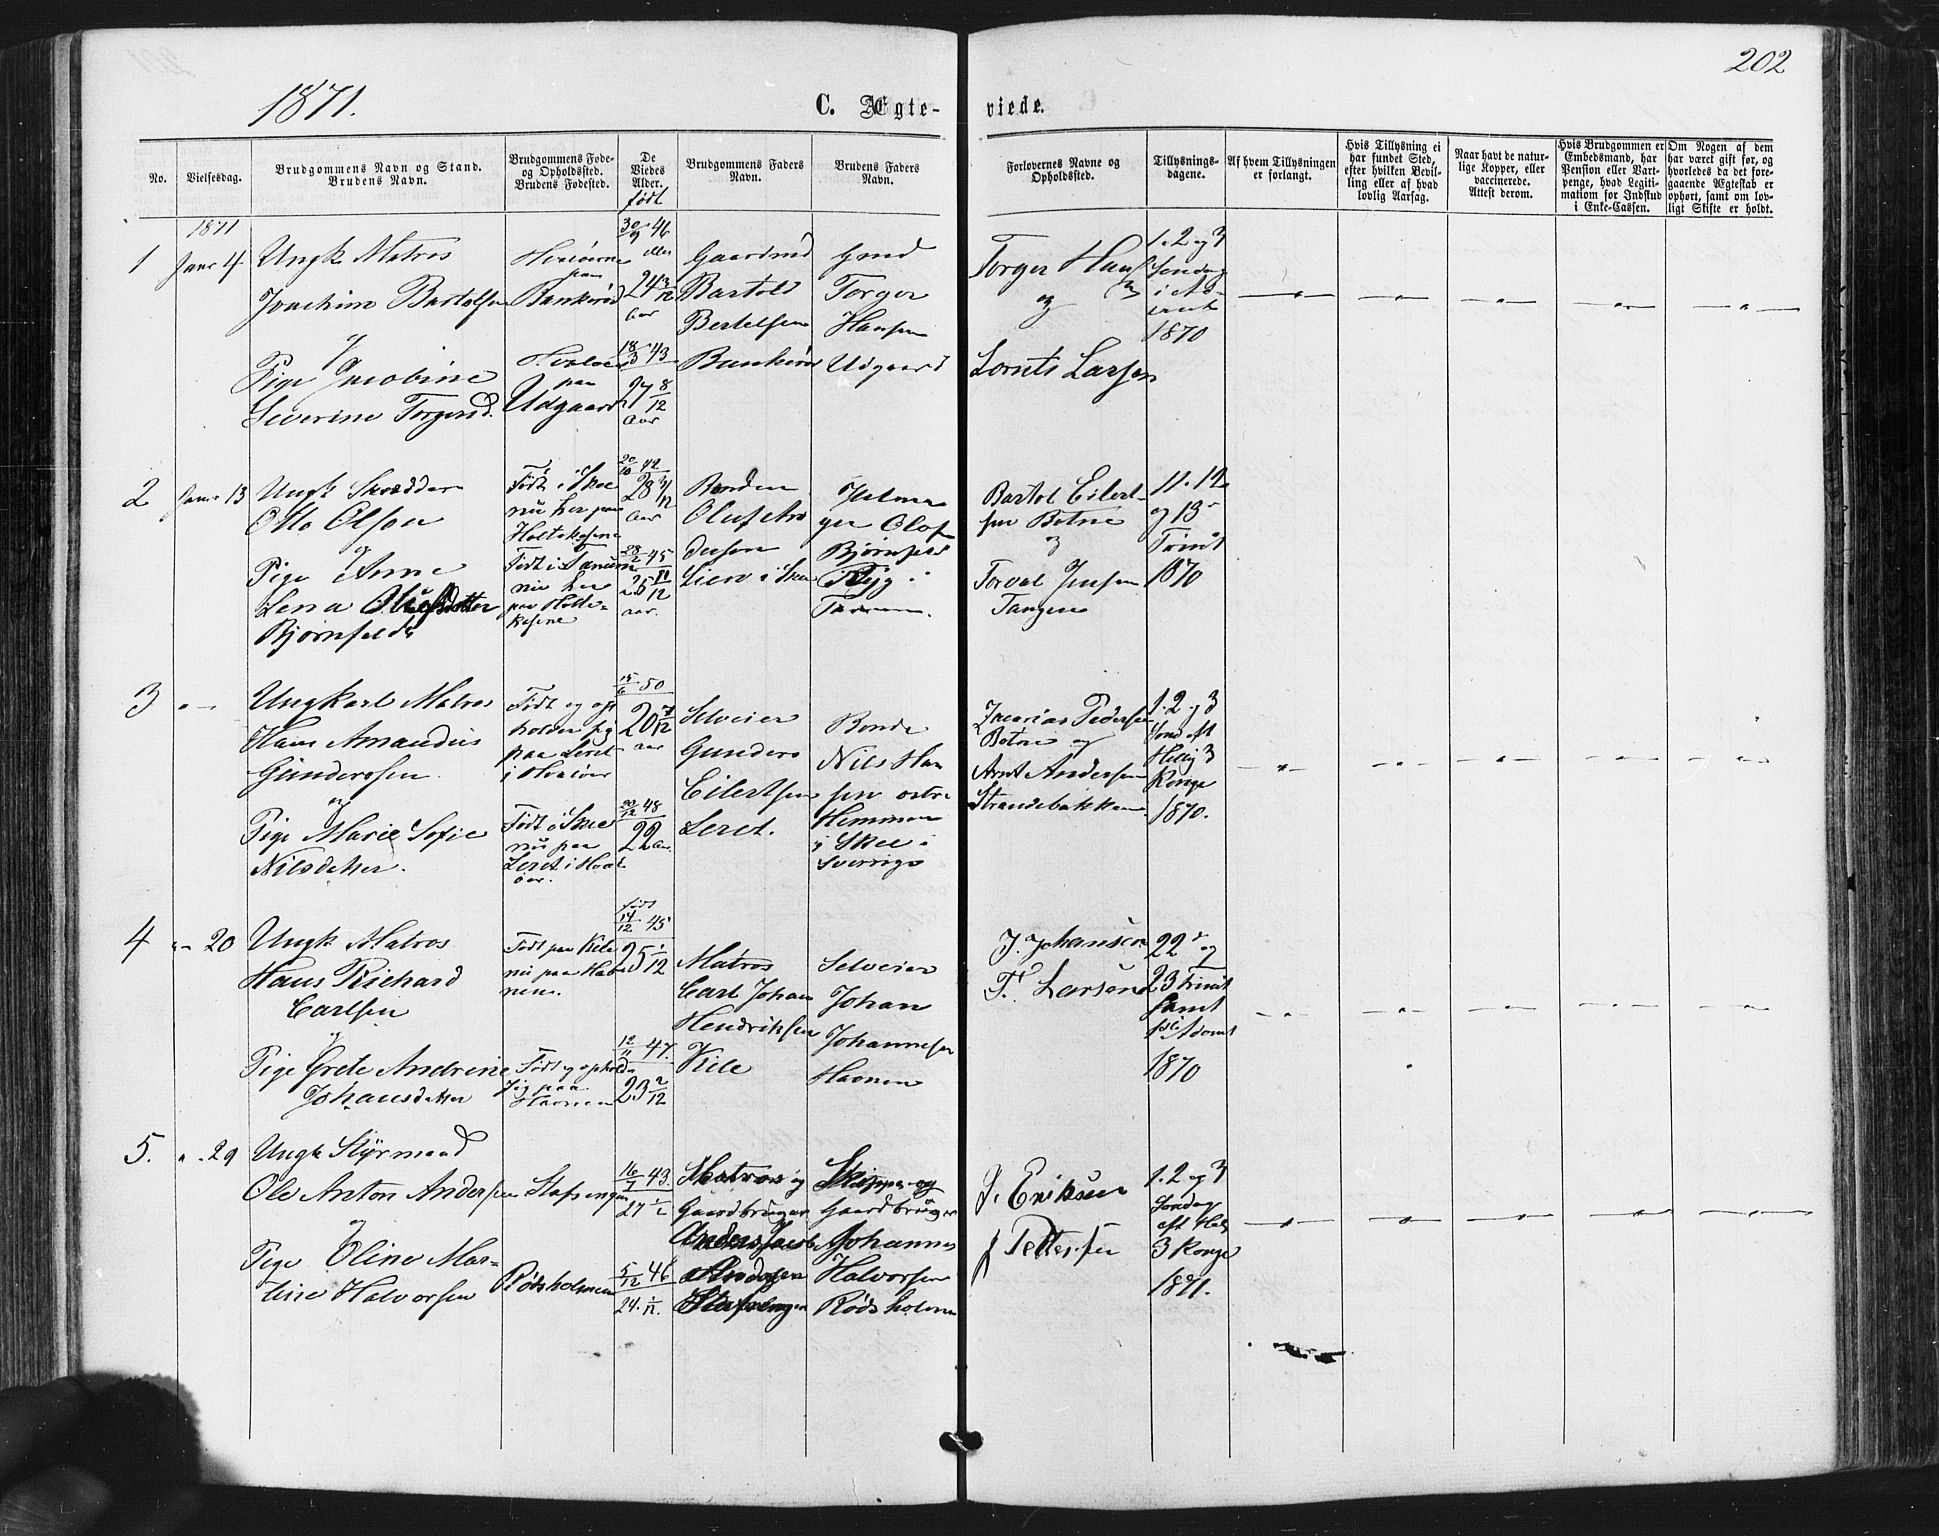 202
1871.
C. Ægte-
viede.
No.
Vielsesdag.
Brudgommens Navn og Stand.
Brudens Navn.
Brudgommens Føde-
og Opholdssted.
Brudens Fødested.
De
Viedes
Alder.
født
Brudgommens Faders
Navn.
Brudens Faders
Navn.
Forlovernes Navne og
Opholdssted.
Tillysnings-
dagene.
Af hvem Tillysningen
er forlangt.
Hvis Tillysning ei
har fundet Sted,
efter hvilken Bevil-
ling eller af hvad
lovlig Aarsag.
Naar havt de natur-
lige Kopper, eller
vaccinerede.
Attest derom.
Hvis Brudgommen er
Embedsmand, har
Pension eller Vart-
penge, hvad Legiti-
mation for Indskud
i Enke-Cassen.
Om Nogen af dem
har været gift før, og
hvorledes da det fore-
gaaende Ægteskab er
ophørt, samt om lov-
ligt Skifte er holdt.
1871
1
Janr 4
Ungk Matros
Joachim Bartolsen
og
Pige Jacobine
Severine Torgersd.
Hvaløerne
paa
Bankerød
Hvaløer
paa
Udgaard
30/9 46
eller
24 3/12
aar
18/3 43
27 8/12
aar
Gaardmd
Bartols
Bertelsen
Bankerød
Gmd
Torger
Hansen
Udgaard
Torger Hans
og
Lornts Larsen
1. 2 og 3
Søndag
i Ad-
vent
1870
2
Janr 13
Ungk Skrædder
Otto Olsen
og
Pige Anne
Lena Olufsdatter
Bjørnfeldt
Født i Skee
nu her paa
Holtekasene
Født i Tanum
nu her
paa Holte-
kasene
20/10 42
28 3/12
aar
28/2 45
25 11/12
aar.
Bonden
Oluf An
dersen
Lien i Skee
Olof
Bjørnfeld
Ryg i
Tanum.
Bartol Eilert-
sen Botne
og
Torval Jensen
Tangene
11. 12
og 13
Trinit
1870
3
Ungkarl Matros
Hans Amandus
Gundersen
og
Pige Marie Sofie
Nilsdatter.
Født og op
holder sig
paa Leret
i Hvaløer
Født i Skee
nu paa
Leret i Hval
øer.
15/6 50
20 7/12
aar
20/12 48
22 aar
Selveier
Gunders
Eilertsen
Leret.
Bonde
Nils Han
sen østre
Hemmen
i Skee i
Sverrige
Zacarias Pedersen
Botne og
Arnt Andersen
Strandebakken
1. 2 og 3
Sønd eft
Hellig 3
Konge
1870.
4
20
Ungk Matros
Hans Richard
Carlsen
og
Pige Grete Andrine
Johansdatter
Født paa Kile
nu paa Hav
nen.
Født og opholde
sig paa
Havnen
født
14/12 45
25 1/12
12/11 47.
23 2/12
Matros
Carl Johan
Hendriksen
Kile
Selveier
Johan
Johannesen
Havnen
J. Johansen
F. Larsen
22 og
23 Trinit
samt
1ste Advent
1870
5.
29
Ungk Styrmand
Ole Anton Andersen
og
Pige Oline Mar-
tine Halvorsen
Stafsengen
Rødsholmen
16/7 43
27 1/2
5/12 46
24. 1/12.
Matros og
Gaardbruger
Anders Jacob
Andersen
Stafsengen
Skipper og
Gaardbruger
Johannes
Halvorsen
Rødsholmen
J. Eriksen
J Pettersen
1. 2 og 3
Søndag
eft Hell
3 Konge
1871.